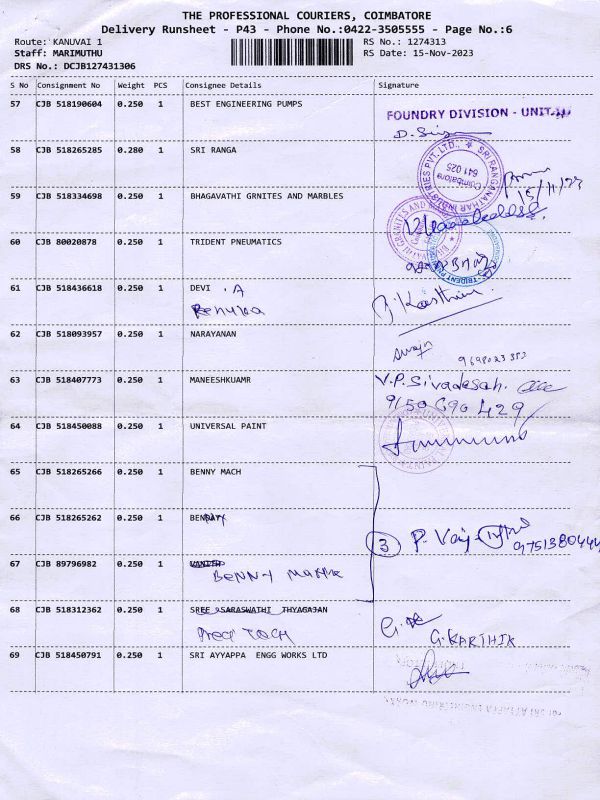 THE PROFESSIONAL COURIERS, COIMBATORE
Delivery Runsheet - P43 - Phone No.:0422-3505555 - Page No.:6
Route: KANUVAI 1 RS No.: 1274313
Staff: MARIMUTHU RS Date: 15-Nov-2023
DRS No.: DCJB127431306
S No Consignment No Weight PCS Consignee Details Signature
57 CJB 518190604 0.250 1 BEST ENGINEERING PUMPS
FOUNDRY DIVISION - UNIT-II
58 CJB 518265285 0.280 1 SRI RANGA
SRI RANGANATHAR INDUSTRIES PVT. LTD.,
Coimbatore
641 025
15/11/23
59 CJB 518334698 0.250 1 BHAGAVATHI GRNITES AND MARBLES
60 CJB 80020878 0.250 1 TRIDENT PNEUMATICS
61 CJB 518436618 0.250 1 DEVI . A
Renuka
G. Karthi
62 CJB 518093957 0.250 1 NARAYANAN
63 CJB 518407773 0.250 1 MANEESHKUAMR
V.P. Sivadesah.
9150690429
64 CJB 518450088 0.250 1 UNIVERSAL PAINT
65 CJB 518265266 0.250 1 BENNY MACH
66 CJB 518265262 0.250 1 BEN
3 P. Vaij
9751380444
67 CJB 89796982 0.250 1
BENNY
68 CJB 518312362 0.250 1 SREE SARASWATHI THYAGAJAN
Preci TECH
G. KARTHIK
69 CJB 518450791 0.250 1 SRI AYYAPPA ENGG WORKS LTD